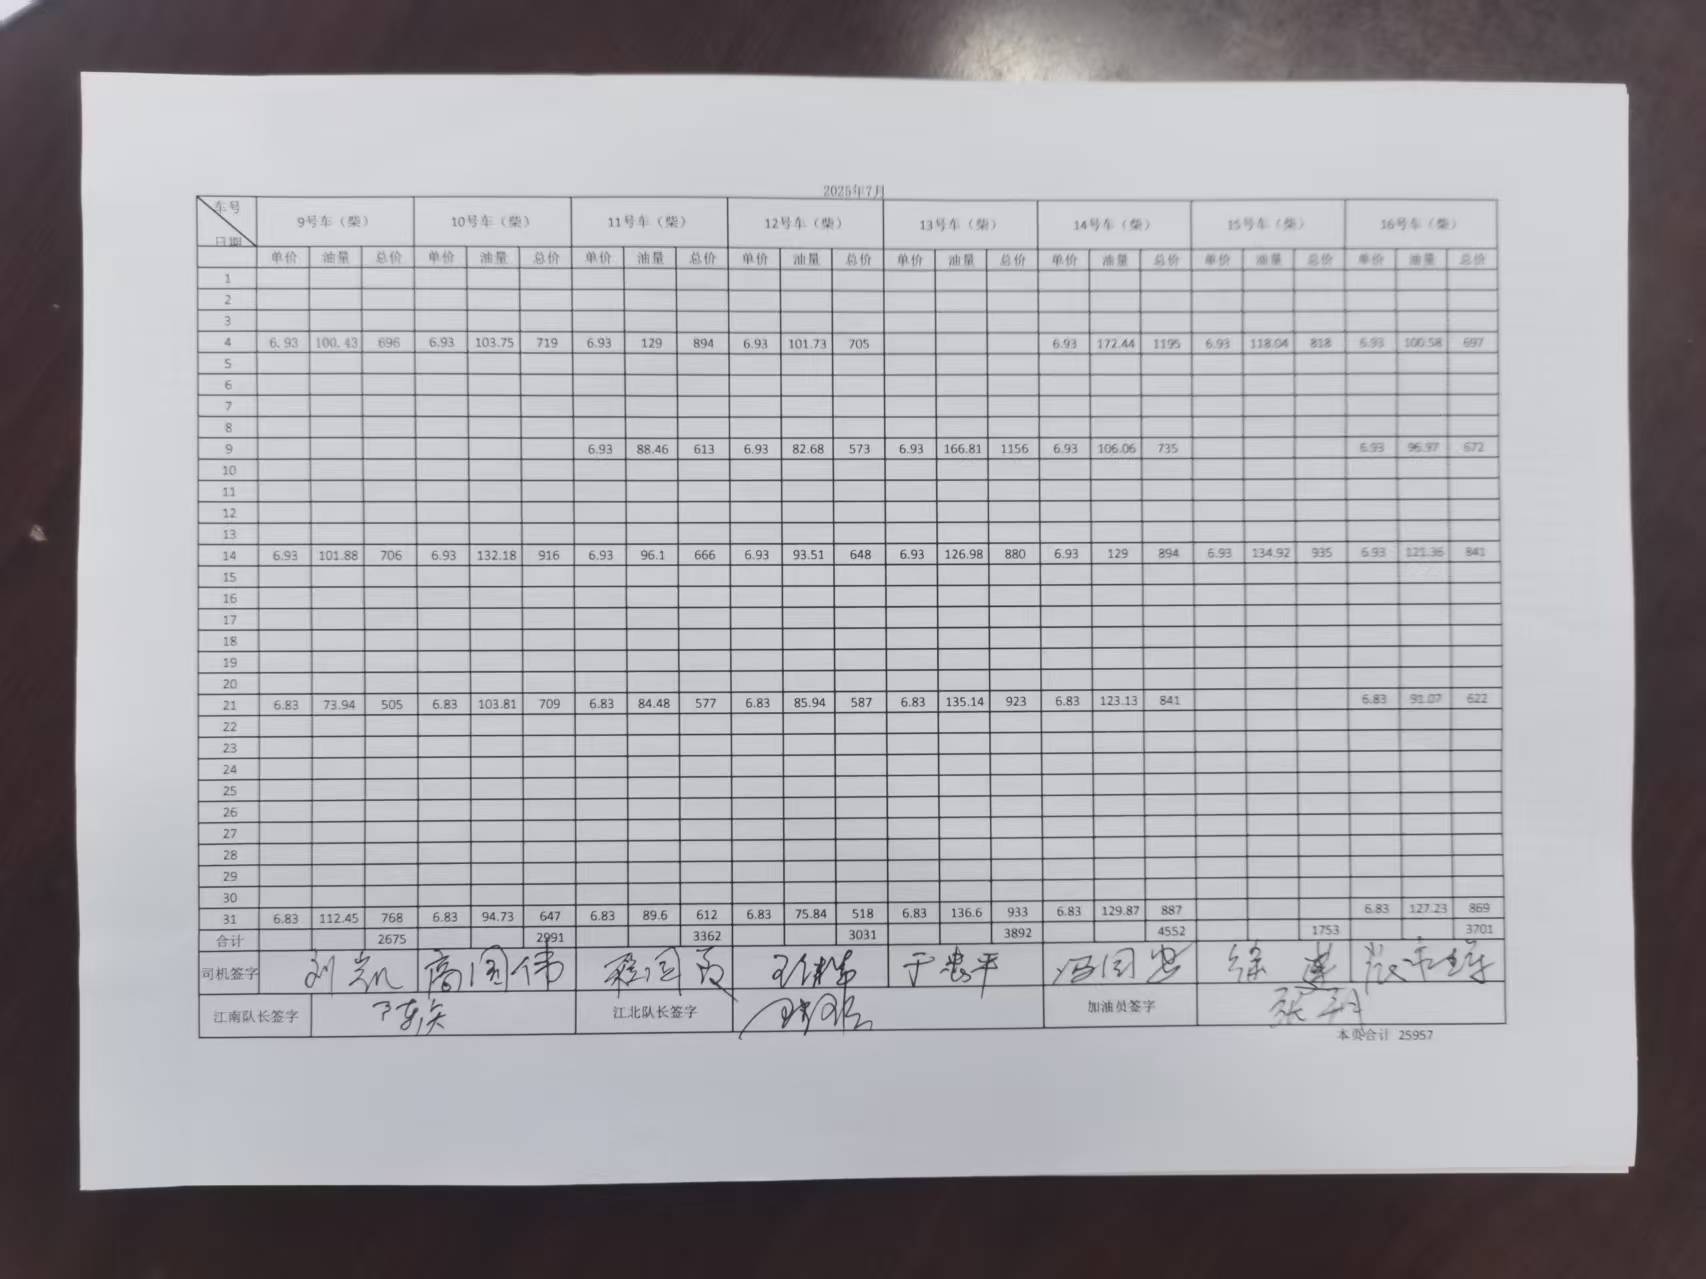 2025年7月
车号 9号车（柴） 10号车（柴） 11号车（柴） 12号车（柴） 13号车（柴） 14号车（柴） 15号车（柴） 16号车（柴）
日期
单价 油量 总价 单价 油量 总价 单价 油量 总价 单价 油量 总价 单价 油量 总价 单价 油量 总价 单价 油量 总价 单价 油量 总价
1
2
3
4 6.93 100.43 696 6.93 103.75 719 6.93 129 894 6.93 101.73 705 6.93 172.44 1195 6.93 118.04 818 6.93 100.58 697
5
6
7
8
9 6.93 88.46 613 6.93 82.68 573 6.93 166.81 1156 6.93 106.06 735 6.93 96.97 672
10
11
12
13
14 6.93 101.88 706 6.93 132.18 916 6.93 96.1 666 6.93 93.51 648 6.93 126.98 880 6.93 129 894 6.93 134.92 935 6.93 121.36 841
15
16
17
18
19
20
21 6.83 73.94 505 6.83 103.81 709 6.83 84.48 577 6.83 85.94 587 6.83 135.14 923 6.83 123.13 841 6.83 91.07 622
22
23
24
25
26
27
28
29
30
31 6.83 112.45 768 6.83 94.73 647 6.83 89.6 612 6.83 75.84 518 6.83 136.6 933 6.83 129.87 887 6.83 127.23 869
合计 2675 2991 3362 3031 3892 4552 1753 3701
司机签字 刘凯 高国伟 于忠平
江南队长签字 江北队长签字 加油员签字
本页合计 25957